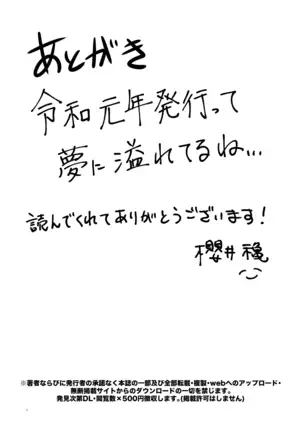 あとがき
令和元年発行って
夢に溢れてるね…
読んでくれてありがとうございます！
櫻井
※著者ならびに発行者の承認なく本誌の一部及び全部転載・複製・webへのアップロード・
無断掲載サイトからのダウンロードの一切を禁じます。
発見次第DL・閲覧数×500円徴収します。(掲載許可はしません)